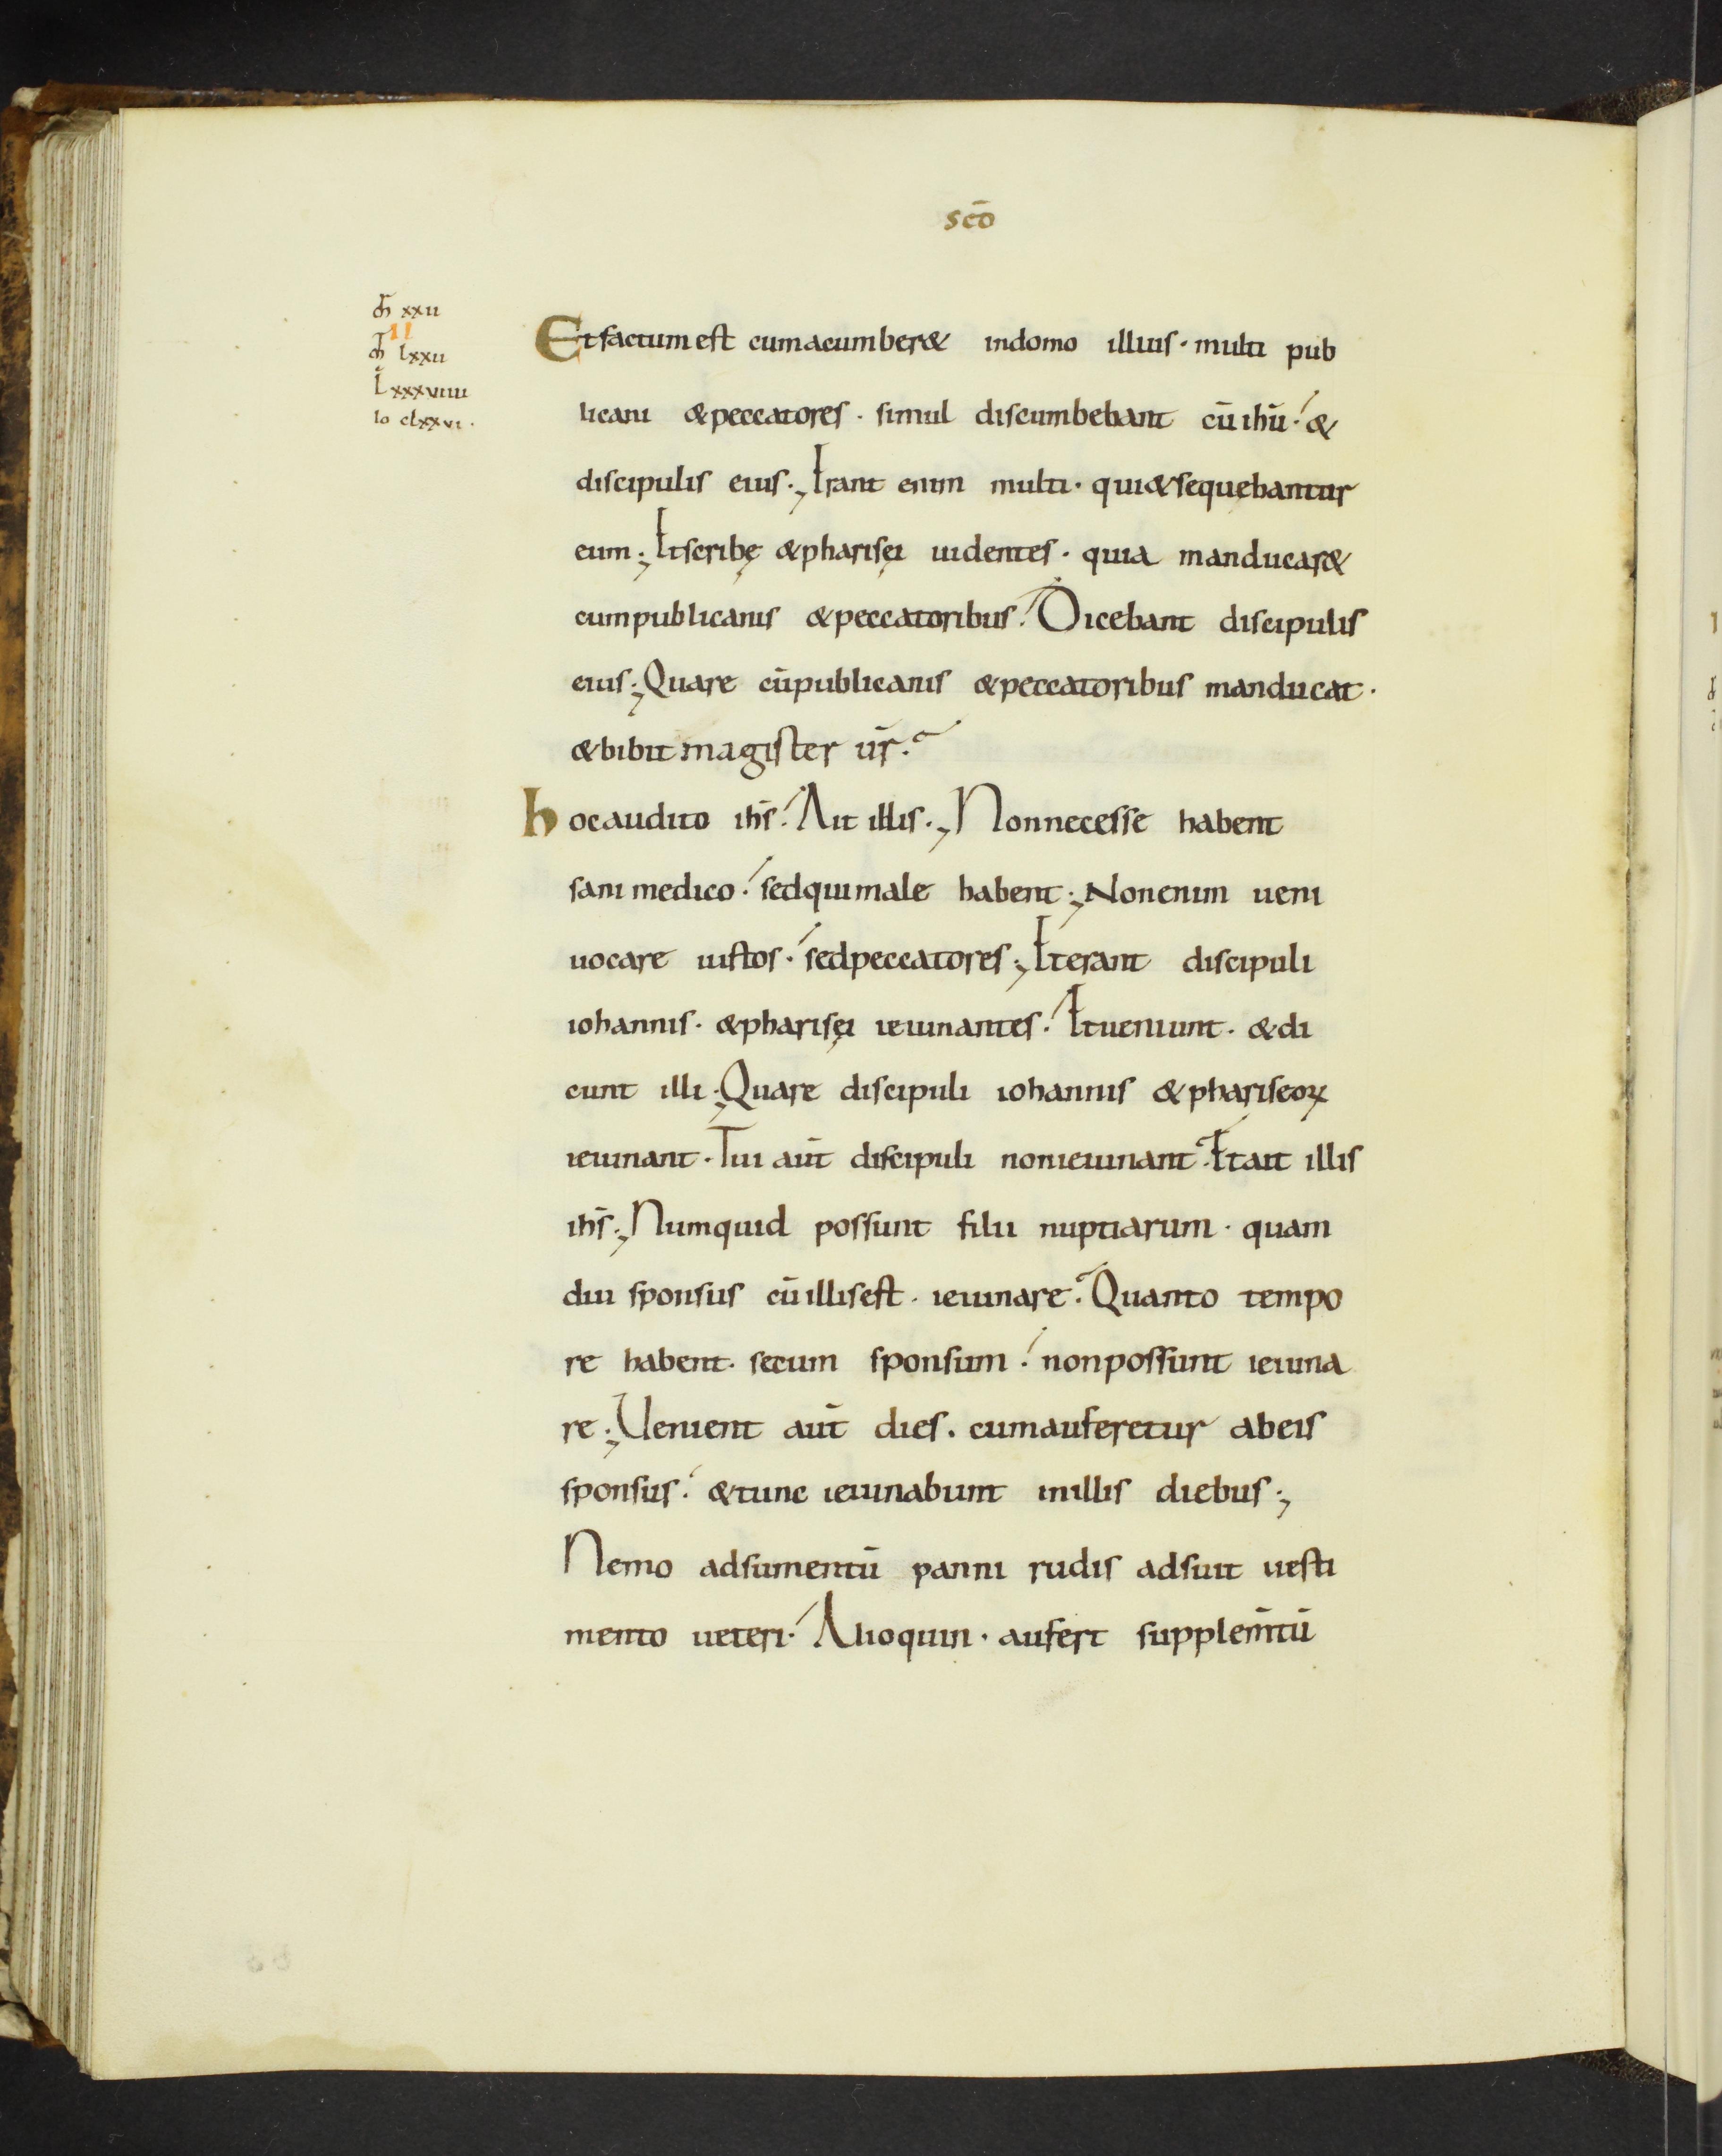 scō
m̄ xxii
II
m̄ lxxii
L̄ xxxviiii
Io clxxvi.
Et factum est cum acumber& in domo illius· multi pub
licani & peccatores· simul discumbebant cū ihū· &
discipulis eius·, Erant enim multi· qui & sequebantur
eum·, Et scribę & pharisęi uidentes· quia manducar&
cum publicanis & peccatoribus· Dicebant discipulis
eius·, Quare cū publicanis & peccatoribus manducat·
& bibit magister ūr·
hoc audito ihs̄· Ait illis·, Non necesse habent
sani medico· sed qui male habent·, Non enim ueni
uocare iustos· sed peccatores·, Et erant discipuli
iohannis· & pharisęi ieiunantes· Et ueniunt· & di
cunt illi·, Quare discipuli iohannis & phariseoꝝ
ieiunant· Tui aūt discipuli non ieiunant· Et ait illis
ihs̄·, Numquid possunt filii nuptiarum· quam
diu sponsus cū illis est· ieiunare· Quanto tempo
re habent· secum sponsum· non possunt ieiuna
re·, Uenient aūt dies· cum auferetur ab eis
sponsus· & tunc ieiunabunt in illis diebus·,
Nemo adsumentū panni rudis adsuit uesti
mento ueteri· Alioquin· aufert supplem̄tū